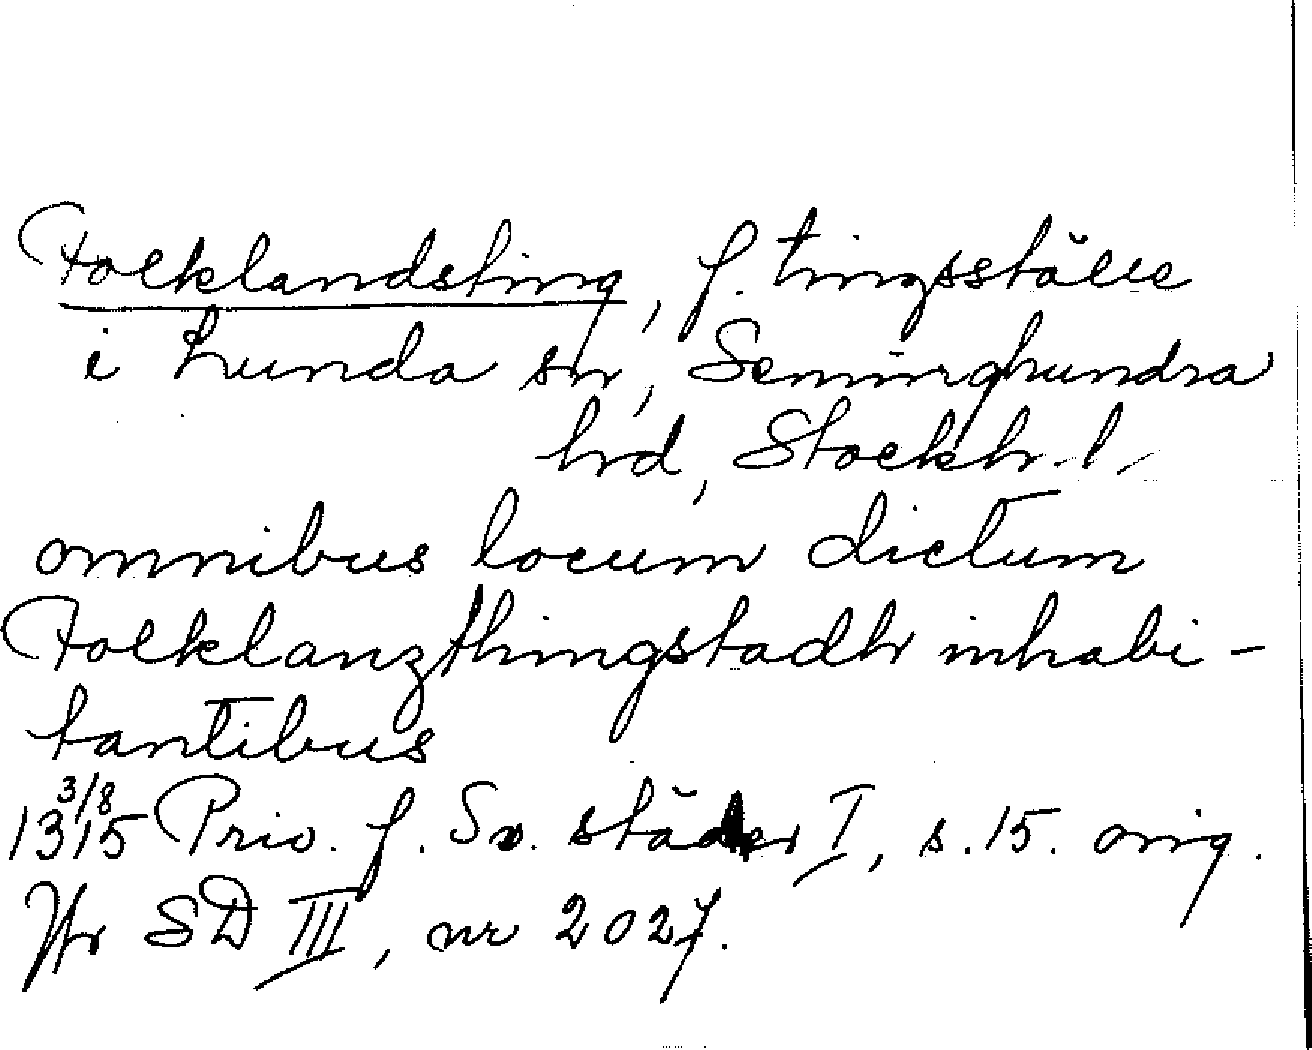 Folklandsting, f. tingsställe
i Lunda sn, Seminghundra
hrd, Stockh. l.
omnibus locum dictum
Folklanzthingstadh inhabi-
tantibus
3/8
1315 Priv. f. Sv. städer I, s. 15. orig.
Jfr SD III, nr 2027.